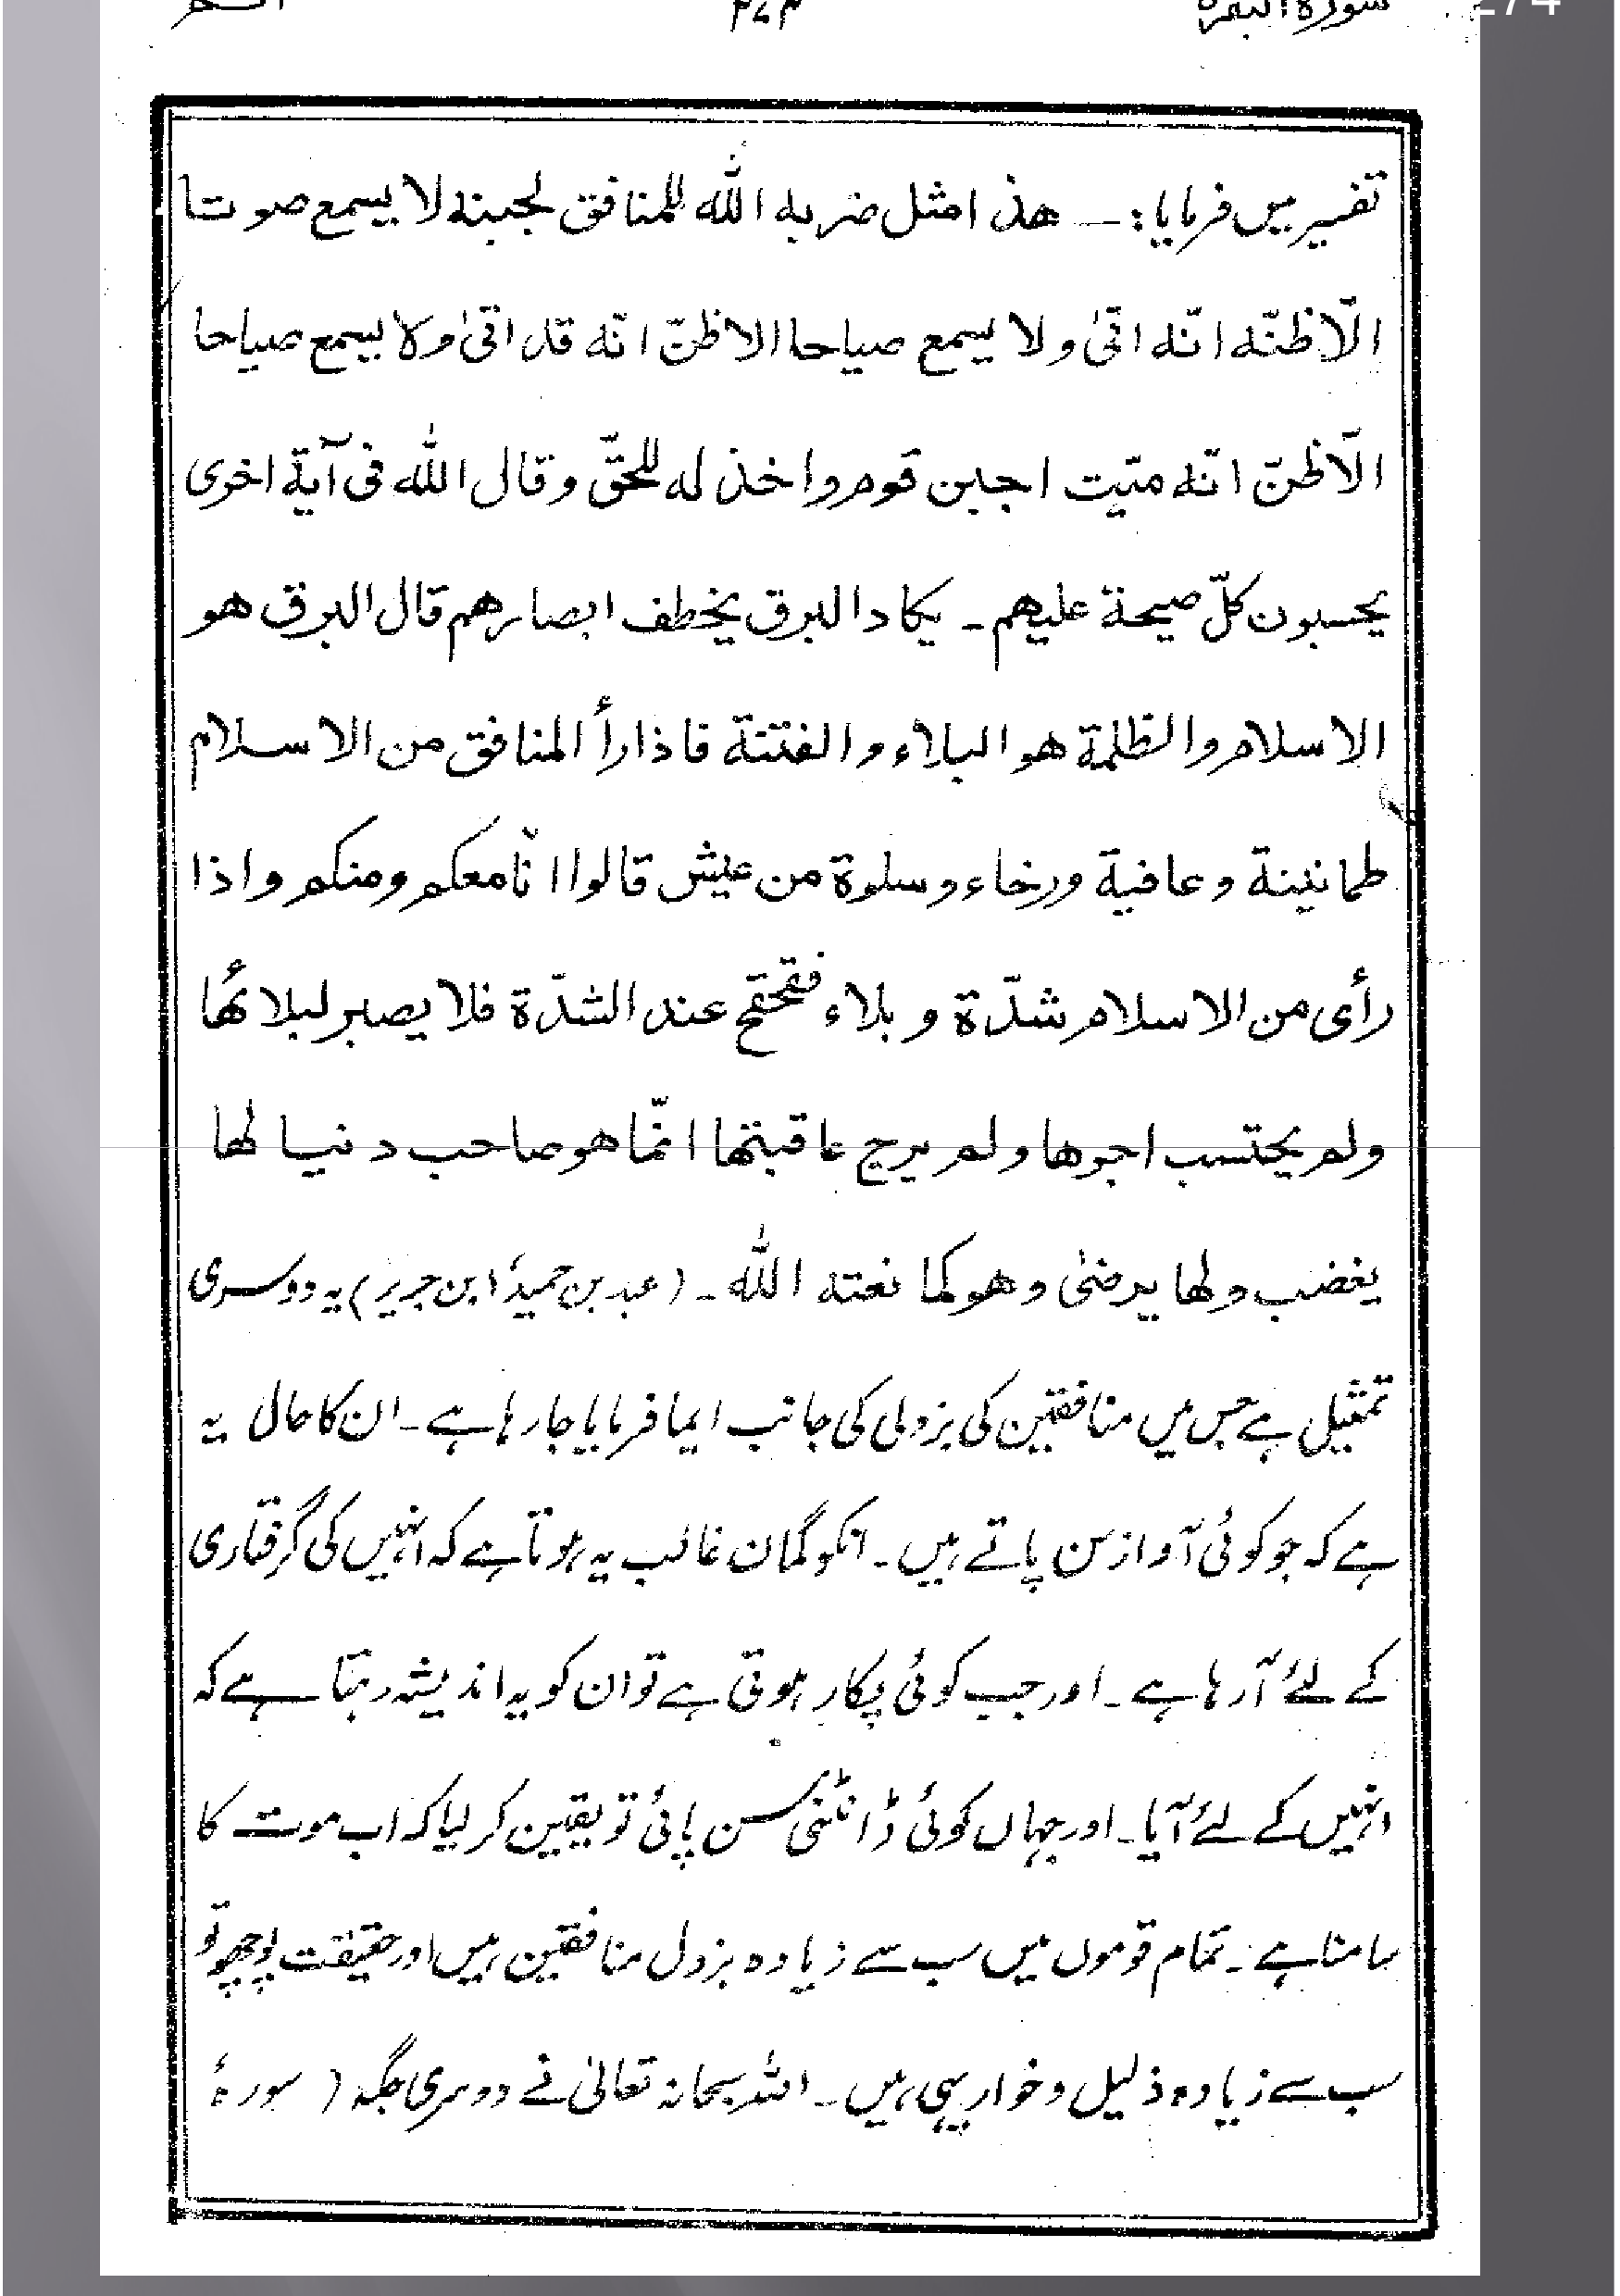 سورة البقره ۲۷۴
274
تفسیر میں فرمایا: ـــ هذا مثل ضربه الله للمنافق لجبنه لا يسمع صوتا
الّا ظنّه انّه اتىٰ ولا يسمع صياحا الا ظنّ انّه قد اتىٰ ولا يسمع صياحا
الّا ظنّ انّه ميّت اجبن قوم واخذ له للحقّ وقال الله فى آية اخرى
يحسبون كلّ صيحة عليهم ـ يكاد البرق يخطف ابصارهم قال البرق هو
الاسلام والظلمة هو البلاء والفتنة فاذا رأ المنافق من الاسلام
طمانينة وعافية ورخاء وسلوة من عيش قالوا انّا معكم ومنكم واذا
رأى من الاسلام شدّة و بلاء فقحقح عند الشدّة فلا يصبر لبلائها
ولم يحتسب اجرها ولم يرج عاقبتها انّما هو صاحب دنيا لها
يغضب ولها يرضىٰ وهو كما نعته الله ـ (عبد بن حمیدؒ ابن جریر) یہ دوسری
تمثیل ہے جس میں منافقین کی بزدلی کی جانب ایما فرمایا جارہا ہے۔ ان کا حال یہ
ہے کہ جو کوئی آواز سن پاتے ہیں۔ انکو گمان غالب یہ ہوتا ہے کہ انہیں کی گرفتاری
کے لئے آرہا ہے۔ اور جب کوئی پکار ہوتی ہے تو ان کو یہ اندیشہ رہتا ہے کہ
انہیں کے لئے آیا۔ اور جہاں کوئی ڈانٹنی سن پائی تو یقین کر لیا کہ اب موت کا
سامنا ہے۔ تمام قوموں میں سب سے زیادہ بزدل منافقین ہیں اور حقیقت پوچھو تو
سب سے زیادہ ذلیل و خوار یہی ہیں۔ اللہ سبحانہ تعالیٰ نے دوسری جگہ ( سورۂ